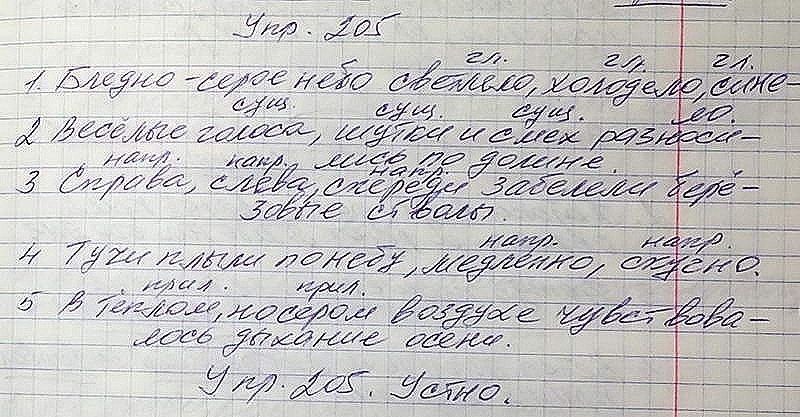 Упр. 205
гл. гл. гл.
1. Бледно-серое небо светлело, холодело, сине-
сущ. сущ. сущ. ло.
2 Весёлые голоса, шутки и смех разноси-
лись по долине.
напр. напр. напр.
3 Справа, слева, спереди забелели берё-
зовые стволы.
напр. напр.
4 Тучи плыли по небу, медленно, скучно.
прил. прил.
5 В тёплом, но сером воздухе чувствова-
лось дыхание осени.
Упр. 205. Устно.